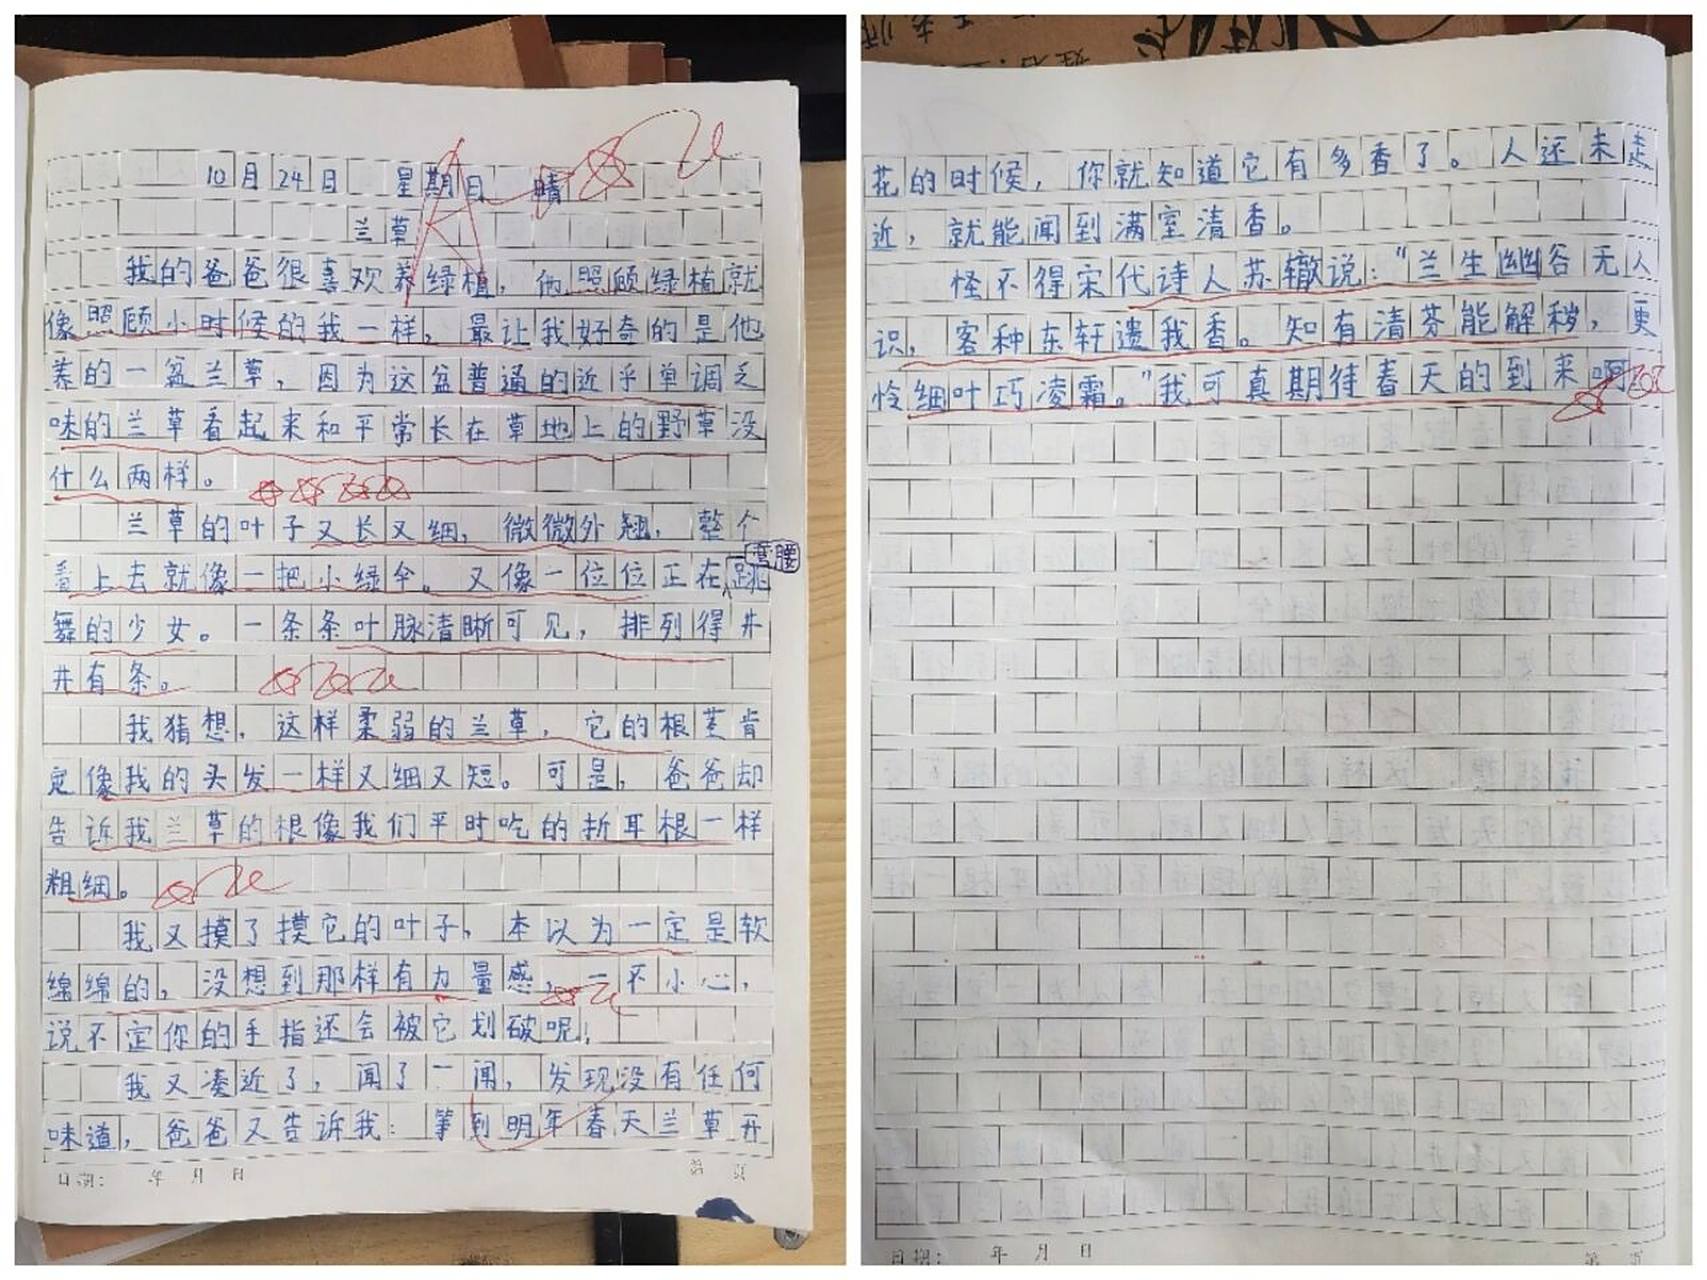 10月24日 星期日 晴
兰草
我的爸爸很喜欢养绿植，他照顾绿植就
像照顾小时候的我一样，最让我好奇的是他
养的一盆兰草，因为这盆普通的近乎单调乏
味的兰草看起来和平常长在草地上的野草没
什么两样。
兰草的叶子又长又细，微微外翘，整个
弯腰
看上去就像一把小绿伞。又像一位位正在跳
舞的少女。一条条叶脉清晰可见，排列得井
井有条。
我猜想，这样柔弱的兰草，它的根茎肯
定像我的头发一样又细又短。可是，爸爸却
告诉我兰草的根像我们平时吃的折耳根一样
粗细。
我又摸了摸它的叶子，本以为一定是软
绵绵的，没想到那样有力量感，一不小心，
说不定你的手指还会被它划破呢！
我又凑近了，闻了一闻，发现没有任何
味道，爸爸又告诉我：等到明年春天兰草开
日期： 年 月 日 第 页
花的时候，你就知道它有多香了。人还未走
近，就能闻到满室清香。
怪不得宋代诗人苏辙说：“兰生幽谷无人
识，客种东轩遗我香。知有清芬能解秽，更
怜细叶巧凌霜。”我可真期待春天的到来啊
日期： 年 月 日 第 页